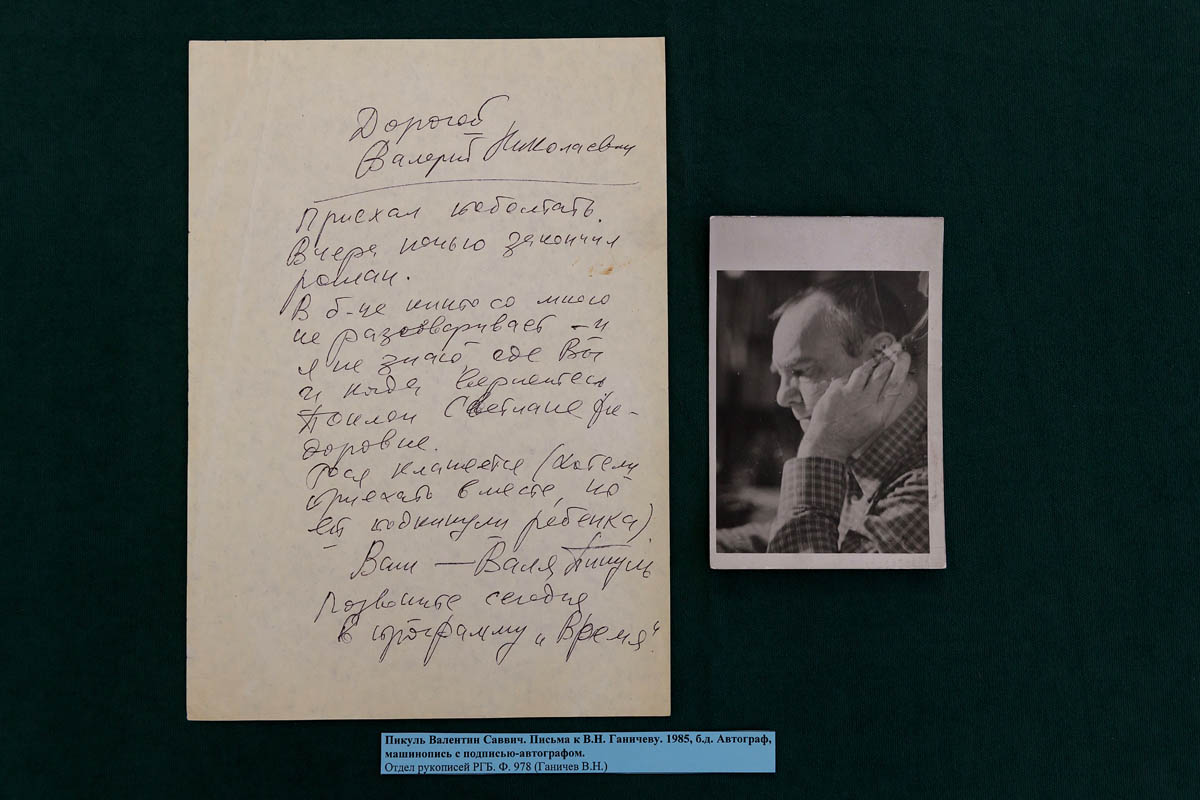 Дорогой
Валерий Николаевич
Приехал поболтать.
Вчера ночью закончил
роман.
В б-це никто со мною
не разговаривает – и
я не знаю, где Вы
и когда вернетесь
Поклон Светлане Фе-
доровне.
Тося кланяется (хотели
приехать вместе, но
ей подкинули ребенка)
Ваш — Валя Пикуль
Позвоните сегодня
в программу „Время“.
Пикуль Валентин Саввич. Письма к В.Н. Ганичеву. 1985, б.д. Автограф,
машинопись с подписью-автографом.
Отдел рукописей РГБ. Ф. 978 (Ганичев В.Н.)